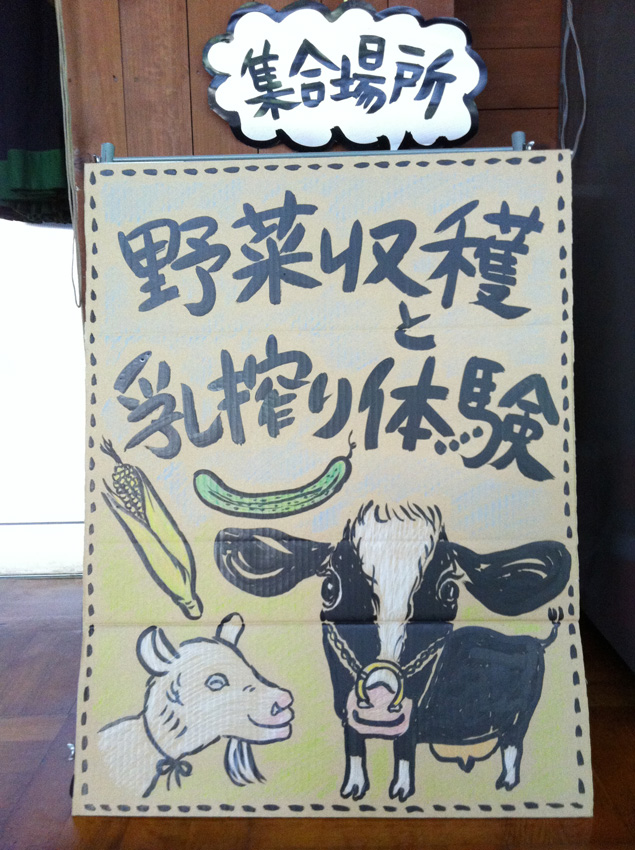 集合場所
野菜収穫
と
乳搾り体験